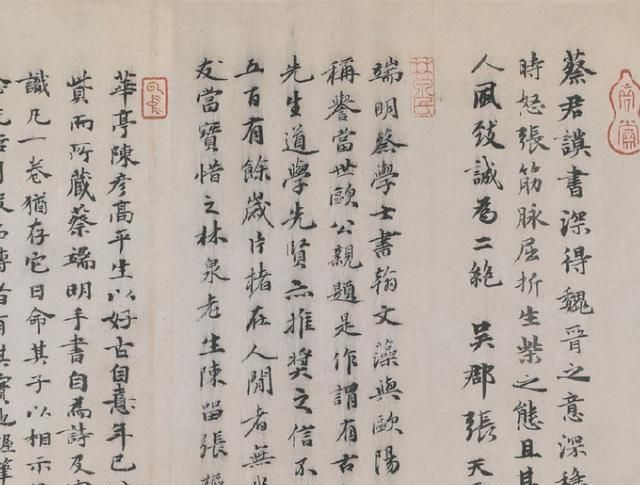 蔡君謨書深得魏晉之意深
時怒張筋脉屈折生柴之態
人風致誠為二絶 吳郡張天
端明蔡學士書翰文藻與歐陽
稱譽當世歐公親題是作謂有古
先生道學先賢亦推奬之信不
五百有餘歲片楮在人間者無
友當寶惜之林泉老生陳留張樞
華亭陳彥高平生以好古自意年已
貲而所藏蔡端明手書自為詩及
識凡一卷猶存它日命其子以相示